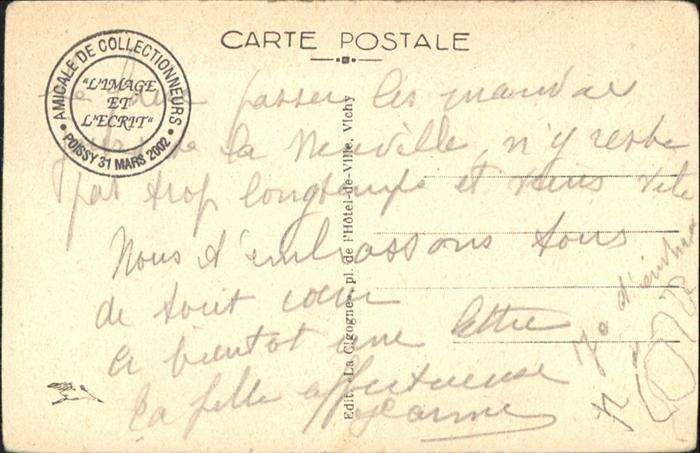 CARTE POSTALE
AMICALE DE COLLECTIONNEURS
"L'IMAGE
ET
L'ECRIT"
POISSY 31 MARS 2002
passer les mauvais
la Neuville, n'y reste
pas trop longtemps et viens vite
Nous t'embrassons tous
de tout cœur
a bientot une lettre
ta fille affectueuse
Jeanne
Edit. La Cigogne, pl. de l'Hôtel-de-Ville, Vichy